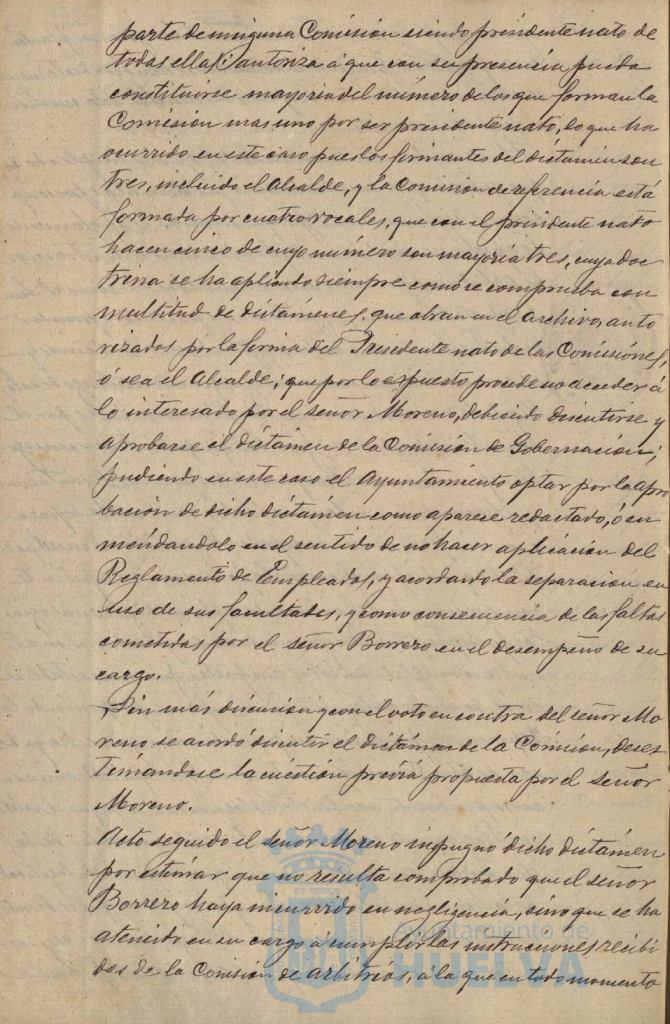 parte de ninguna Comisión siendo presidente nato de
todas ellas autoriza á que con su presencia pueda
constituirse mayoria del número de los que forman la
Comisión mas uno por ser presidente nato, lo que ha
ocurrido en este caso pues los firmantes del dictamen son
tres, incluido el Alcalde, y la Comisión de referencia está
formada por cuatro vocales, que con el presidente nato
hacen cinco de cuyo número son mayoria tres, cuya doc
trina se ha aplicado siempre como se comprueba con
multitud de dictámenes, que obran en el archivo, auto
rizados por la firma del Presidente nato de las Comisiónes,
ó sea el Alcalde; que por lo espuesto procede no acceder á
lo interesado por el señor Moreno, debiendo discutirse y
aprobarse el dictámen de la Comisión de Gobernación;
pudiendo en este caso el Ayuntamiento optar por la apro
bación de dicho dictámen como aparece redactado, ó en
mendandolo en el sentido de no hacer aplicación del
Reglamento de Empleados, y acordando la separación en
uso de sus facultades, y como consecuencia de las faltas
cometidas por el señor Borrero en el desempeño de su
cargo.
Sin más discusión y con el voto en contra del señor Mo
reno se acordó discutir el dictámen de la Comision, deses
timandose la cuestión previa propuesta por el señor
Moreno.
Acto seguido el señor Moreno impugnó dicho dictámen
por estimar que no resulta comprobado que el señor
Borrero haya incurrido en negligencia, sino que se ha
atenido en su cargo á cumplir las instrucciones recibi
das de la Comisión de Arbitrios, á la que en todo momento
Ayuntamiento de
HUELVA